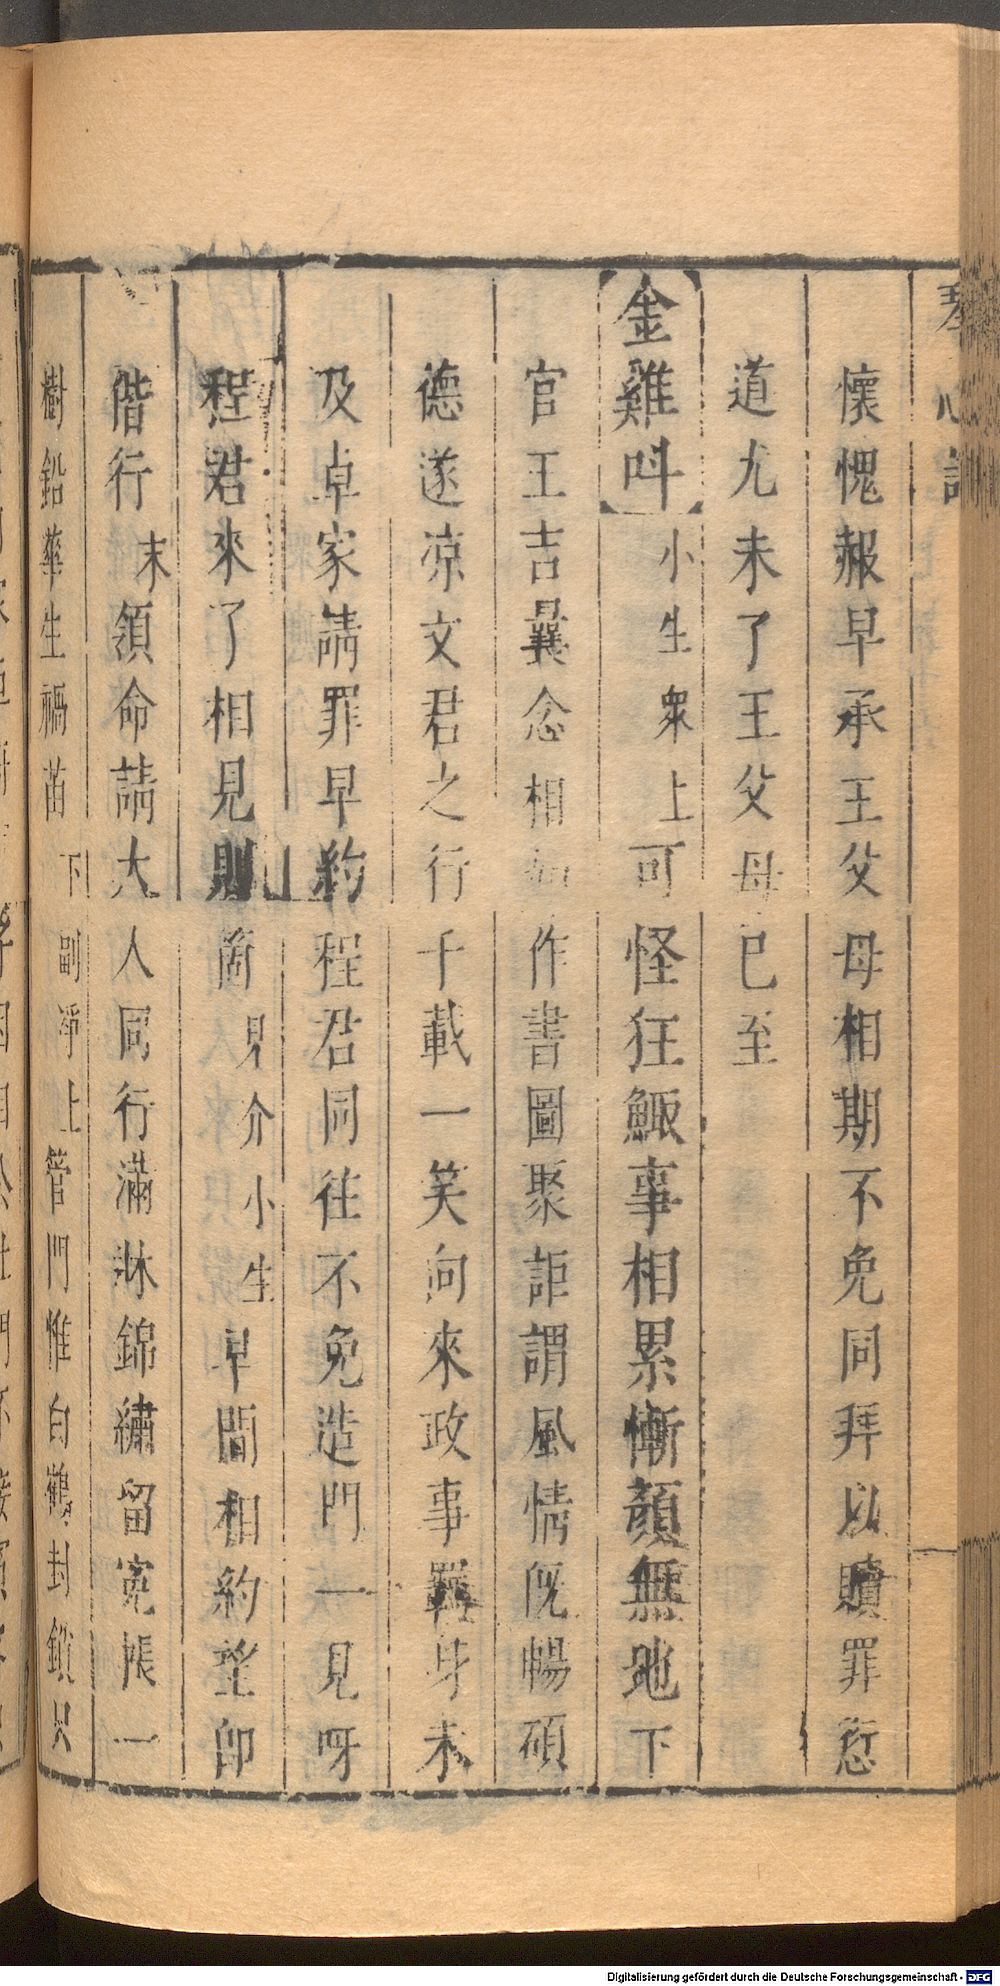 琴心記
懷愧赧早承王父母相期不免同拜以贖罪愆
道尤未了王父母已至
金雞呌 小生衆上 可怪狂鯫事相累慚顏無地下
官王吉曩念相如作書圖聚詎謂風情旣暢碩
德遂凉文君之行千載一笑向來政事羈身未
及卓家請罪早約程君同往不免造門一見呀
程君來了相見則箇 見介 小生 早間相約望卽
偕行 末 領命請大人同行滿牀錦繡留寃帳一
樹鉛華生禍苗 下 副淨上 管門惟白鶴封鎖只
Digitalisierung gefördert durch die Deutsche Forschungsgemeinschaft - DFG